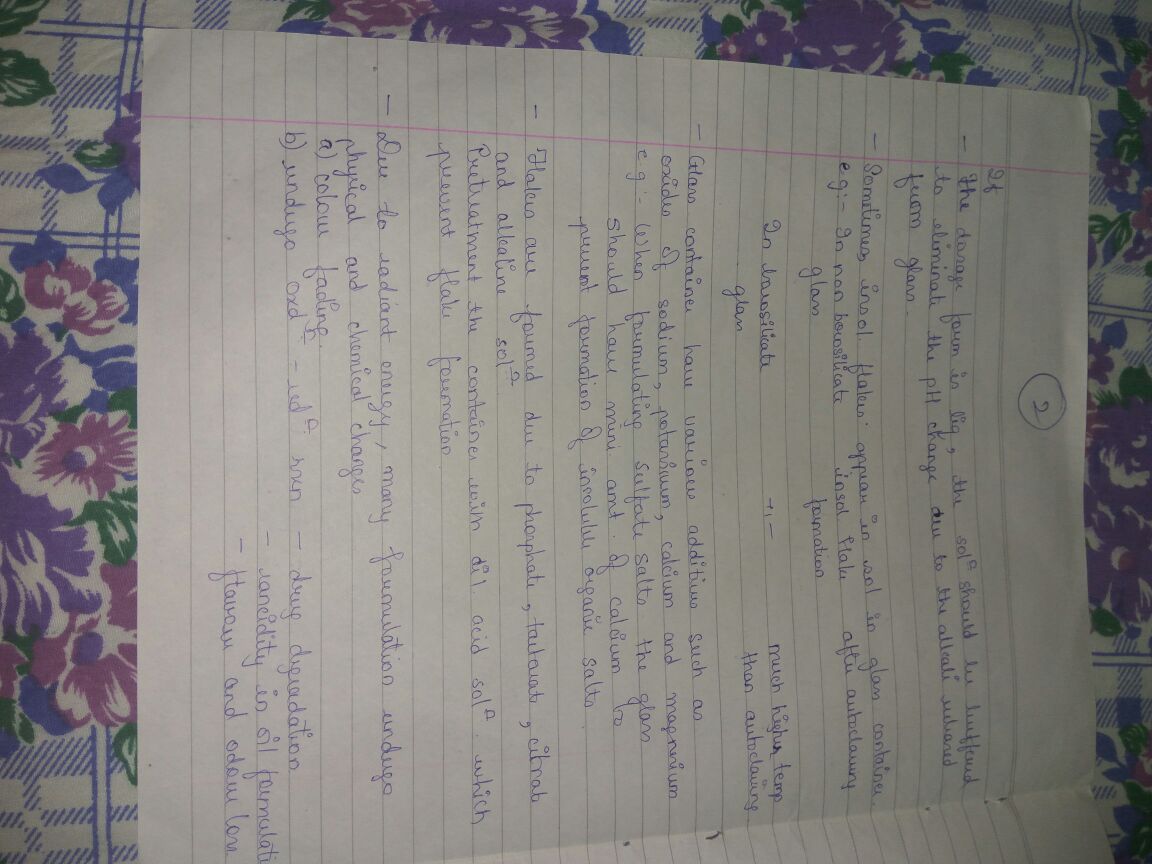 2
If
- The dosage form is liq, the solⁿ should be buffered
to eliminate the pH change due to the alkali released
from glass.
- Sometimes, insol flakes appear in sol in glass container.
e.g:- In non borosilicate insol flake after autoclaving
glass formation
In borosilicate -"- much higher temp
glass than autoclaving
- Glass container have various additives such as
oxides of sodium, potassium, calcium and magnesium
e.g:- When formulating sulfate salts the glass
should have mini amt. of calcium to
prevent formation of insoluble organic salts.
- Flakes are formed due to phosphate, tartarate, citrate
and alkaline solⁿ.
Pretreatment the container with dil. acid solⁿ. which
prevent flake formation
- Due to radiant energy, many formulation undergo
physical and chemical changes
a) colour fading
b) undergo oxdⁿ - redⁿ rxn - drug degradation
- rancidity in oil formulati
- flavour and odour loss